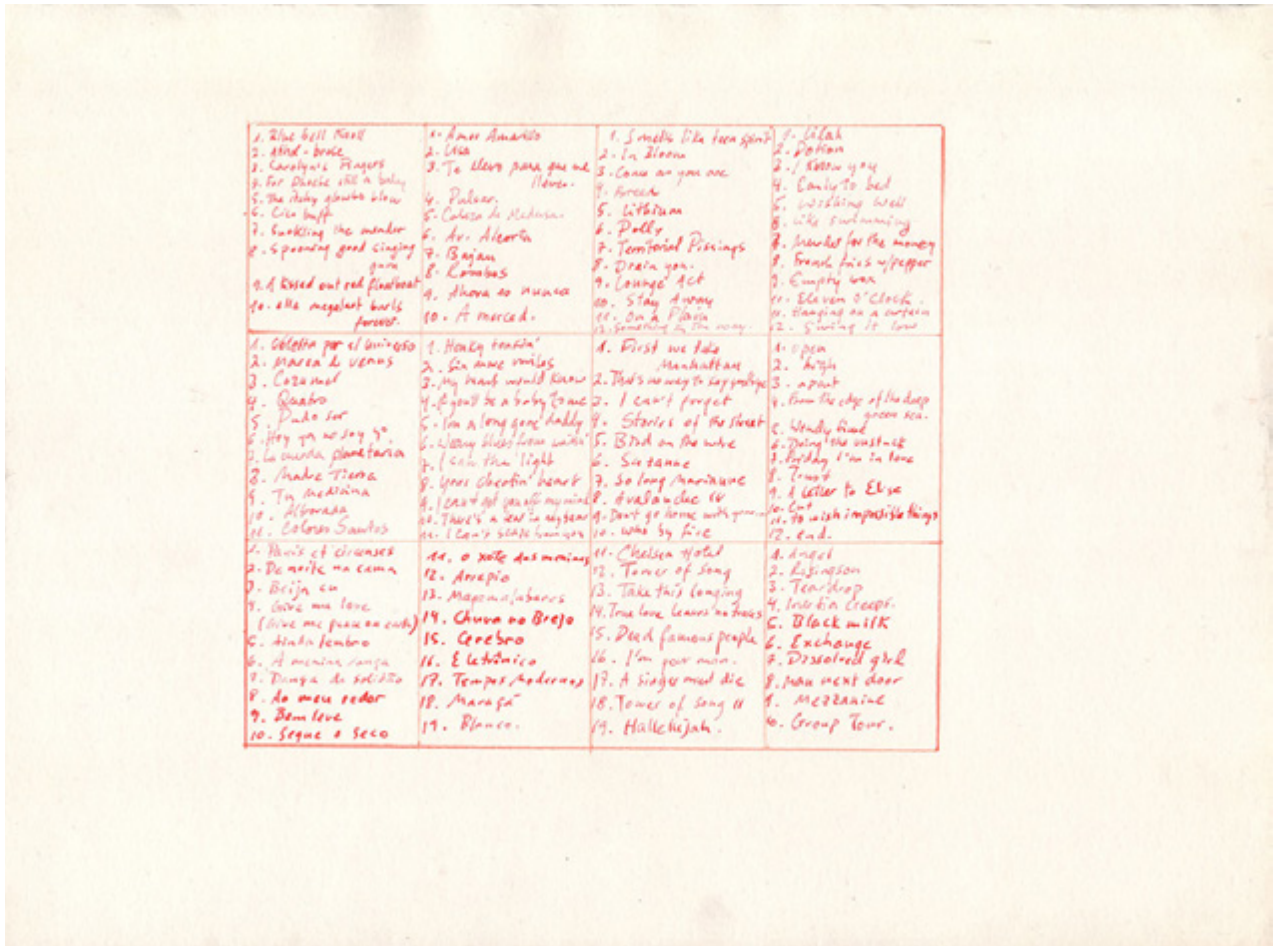 1. Blue bell Knoll
2. Athol-brose
3. Carolyn's Fingers
4. For Phoebe still a baby
5. The itchy glowbo blow
6. Cico buff
7. Suckling the mender
8. Spooning good singing
gum
9. A kissed out red floatboat
10. ella megalast burls
forever.
1. Amor Amarillo
2. Lisa
3. Te llevo para que me
lleves.
4. Pulsar.
5. Cabeza de Medusa.
6. Av. Alcorta
7. Bajan
8. Rombos
9. Ahora es nunca
10. A merced.
1. Smells like teen spirit
2. In Bloom
3. Come as you are
4. Breed
5. Lithium
6. Polly
7. Territorial Pissings
8. Drain you.
9. Lounge Act
10. Stay Away
11. On a Plain
12. Something in the way.
1. Lilah
2. Potion
3. I know you
4. Early to bed
5. Wishing well
6. Like swimming
7. Murder for the money
8. French fries w/pepper
9. Empty box
10. Eleven O'Clock.
11. Hanging on a curtain
12. Swing it low
1. Volteta por el universo
2. Marea de venus
3. Cozumel
4. Quatro
5. Pudo ser
6. Hey ya no soy yo.
7. La cuerda planetaria
8. Madre Tierra
9. Tu medicina
10. Alborada
11. Colores Santos
1. Honky tonkin'
2. Six more miles
3. My heart would know
4. If you'll be a baby to me
5. I'm a long gone daddy
6. Weary blues from waitin'
7. I saw the light
8. Your cheatin' heart
9. I can't get you off my mind
10. There's a tear in my beer
11. I can't
1. First we take
Manhattan
2. That's no way to say goodbye
3. I can't forget
4. Stories of the street
5. Bird on the wire
6. Suzanne
7. So long Marianne
8. Avalanche IV
9. Don't go home with your
10. Who by fire
1. open
2. high
3. apart
4. From the edge of the deep
green sea.
5. Wendy time
6. Doing the unstuck
7. Friday I'm in love
8. Trust
9. A letter to Elise
10. Cut
11. to wish impossible things
12. end.
1. Panis et circenses
2. De noite na cama
3. Beija eu
4. Give me love
(Give me peace on earth)
5. Ainda lembro
6. A menina dança
7. Dança da solidão
8. Ao meu redor
9. Bem leve
10. Segue o Seco
11. O xote das meninas
12. Arrepio
13. Magamalabares
14. Chuva no Brejo
15. Cerebro
16. Eletrônico
17. Tempos Modernos
18. Maraçá
19. Blanco.
11. Chelsea Hotel
12. Tower of song
13. Take this longing
14. True love leaves no traces
15. Dead famous people
16. I'm your man.
17. A singer must die
18. Tower of song II
19. Hallelujah.
1. Angel
2. Risingson
3. Teardrop
4. Inertia Creeps.
5. Black milk
6. Exchange
7. Dissolved girl
8. Man next door
9. Mezzanine
10. Group Four.